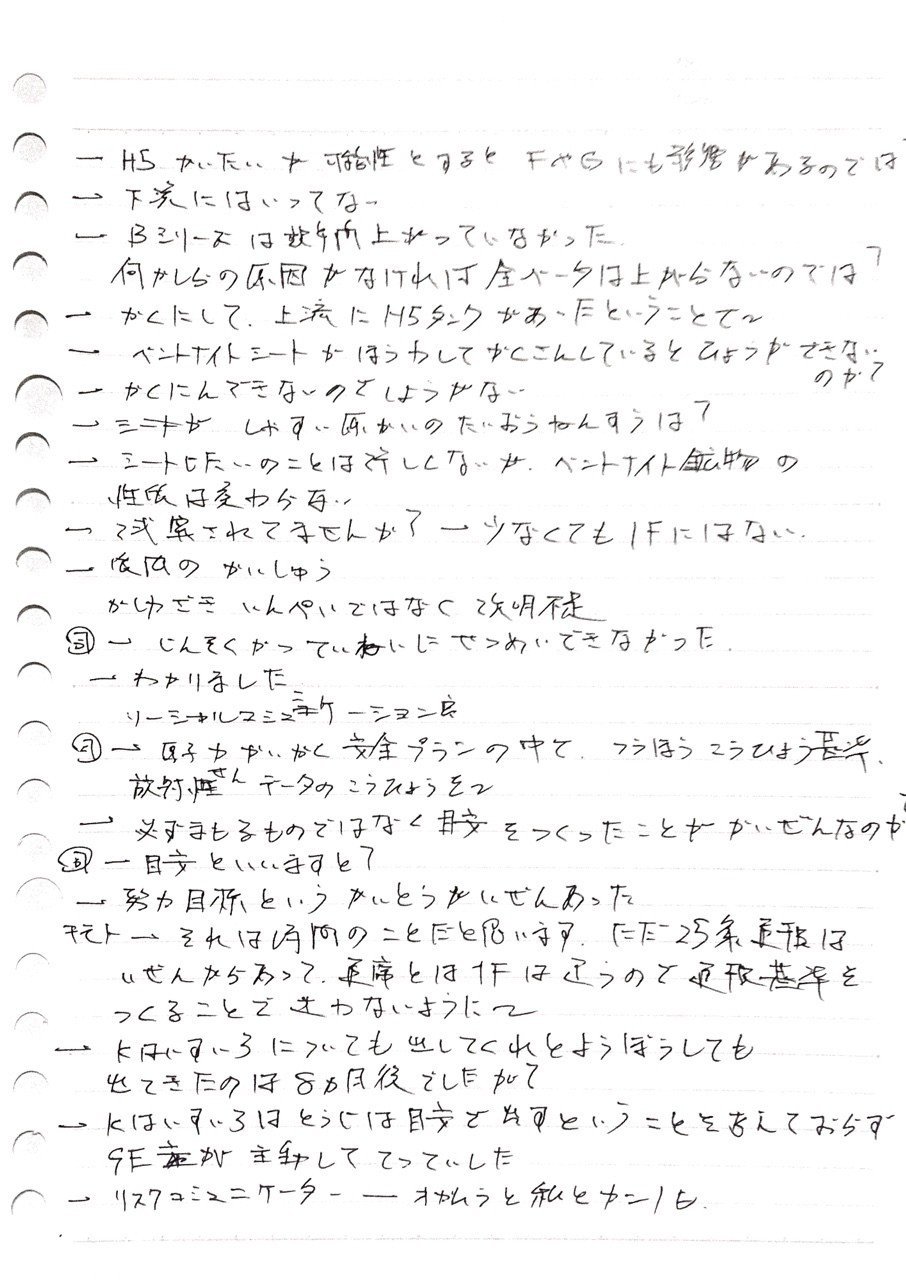 ー H5 かいたいが 可能性とすると FやGにも影響があるのでは
ー 下流にはいってない
ー Bシリーズは数年内上がっていなかった.
何かしらの原因がなければ全ベータは上がらないのでは?
ー かくにして、上流にH5タンクがあったということで〜
ー ベントナイトシートがほうわしてかくさんしているとひょうかできない
のか?
ー かくにんできないのでしょうがない
ー シートが しやすい のたいおうねんすうは?
ー シートじたいのことは詳しくないが、ベントナイト鉱物の
性質は変わらない
ー されてませんか? ー 少なくても1Fにはない.
ー の かいしゅう
いんぺいではなく説明不足
ー じんそくかつていねいにせつめいできなかった
ー わかりました
ソーシャルコミュニケーション室
ー 原子力かいかく安全プランの中で、つうほうこうひょう基準、
放射性せんデータのこうひょうを〜
ー 必ずまもるものではなく目安をつくったことがかいぜんなのか?
ー 目安といいますと?
ー 努力目標というかいとうがいぜんあった
ー それは のことだと思います. ただ25条通報は
いぜんからあって、通常とは1Fは違うので通報基準を
つくることで迷わないように〜
ー Kはいすいろについても出してくれとようぼうしても
出てきたのは8カ月後でしたが?
ー Kはいすいろはとうじは目安で出すということを考えておらず
が主動して
ー リスクコミュニケーター ー オカムラと私と